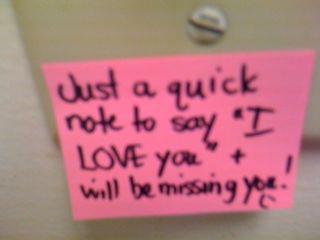 Just a quick
note to say "I
LOVE you" +
will be missing you!